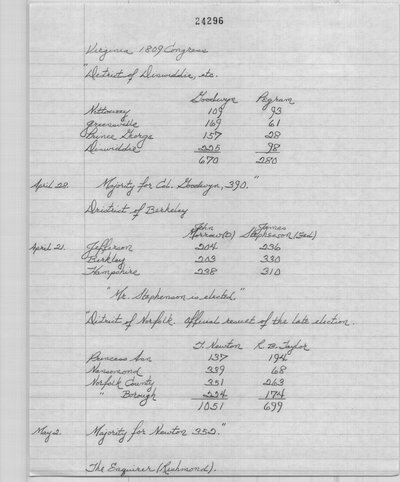 24296
Virginia 1809 Congress
"District of Dinwiddie, etc.
Goodwyn Pegram
Nottoway 109 93
Greensville 169 61
Prince George 157 28
Dinwiddie 235 98
670 280
April 28. Majority for Col. Goodwyn, 390."
District of Berkeley
John Morrow(D) James Stephenson(Fed)
April 21. Jefferson 204 236
Berkley 203 330
Hampshire 238 310
"Mr. Stephenson is elected."
"District of Norfolk. Official result of the late election.
T. Newton R. B. Taylor
Princess Ann 137 194
Nansemond 339 68
Norfolk County 351 263
" Borough 224 174
1051 699
May 2. Majority for Newton 352."
The Enquirer (Richmond).